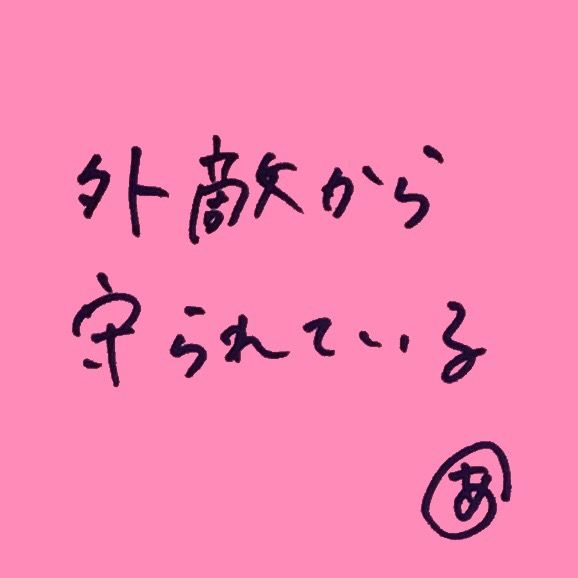 外敵から
守られている
あ